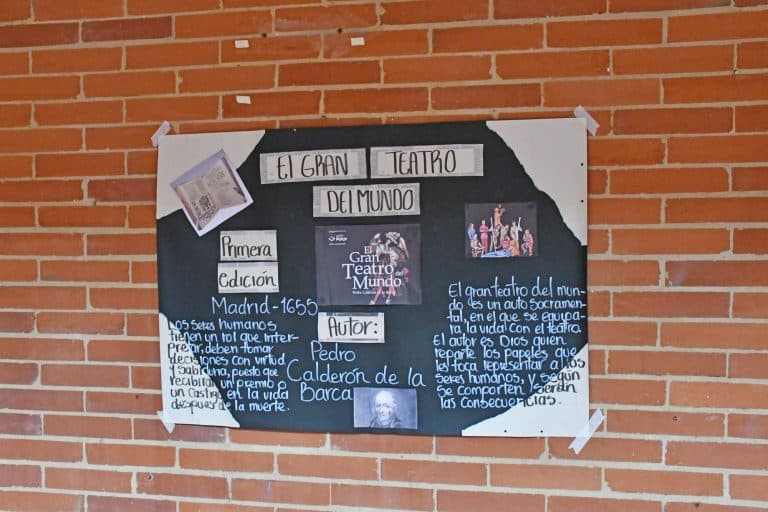 El GRAN TEATRO
DEl MUNDO
Primera
Edición
Madrid-1655
Los seres humanos
tienen un rol que inter-
pretar, deben tomar
decisiones con virtud
y sabiduria, puesto que
recibirán un premio o
un castigo en la vida
después de la muerte.
El
Gran
Teatro
del
Mundo
Autor:
Pedro
Calderón de la
Barca
El gran teatro del mun-
do es un auto Sacramen-
tal, en el que se equipa-
ra la vida con el teatro.
El autor es Dios quien
reparte los papeles que
les toca representar a los
seres humanos, y según
se comporten serán
las consecuencias.